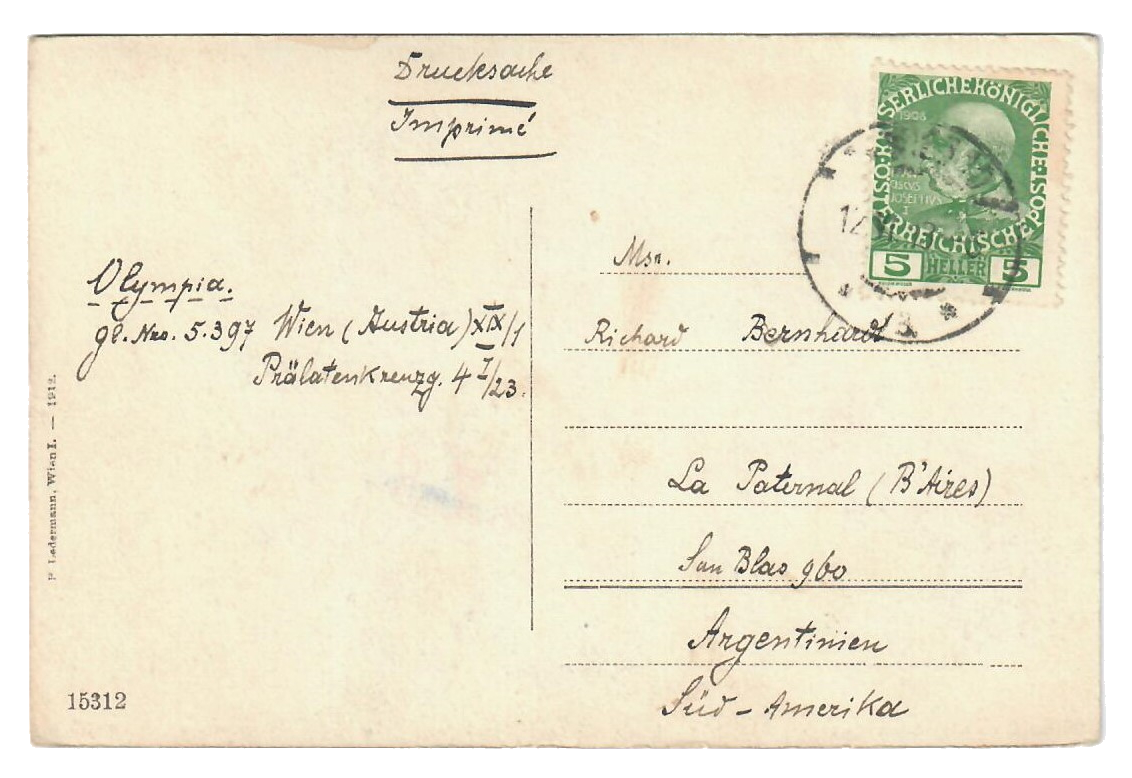 Drucksache
Imprimé
KAISERLICHE KÖNIGLICHE ÖSTERREICHISCHE POST
1908
JOSEPHUS
I
5 HELLER 5
12
Olympia.
gl. Nro. 5.397 Wien (Austria) XIX/1
Prälatenkreuzg. 4 I/23.
Msr.
Richard Bernhardt
La Paternal (B'Aires)
San Blas 960
Argentinien
Süd-Amerika
P. Ledermann, Wien I. — 1912.
15312